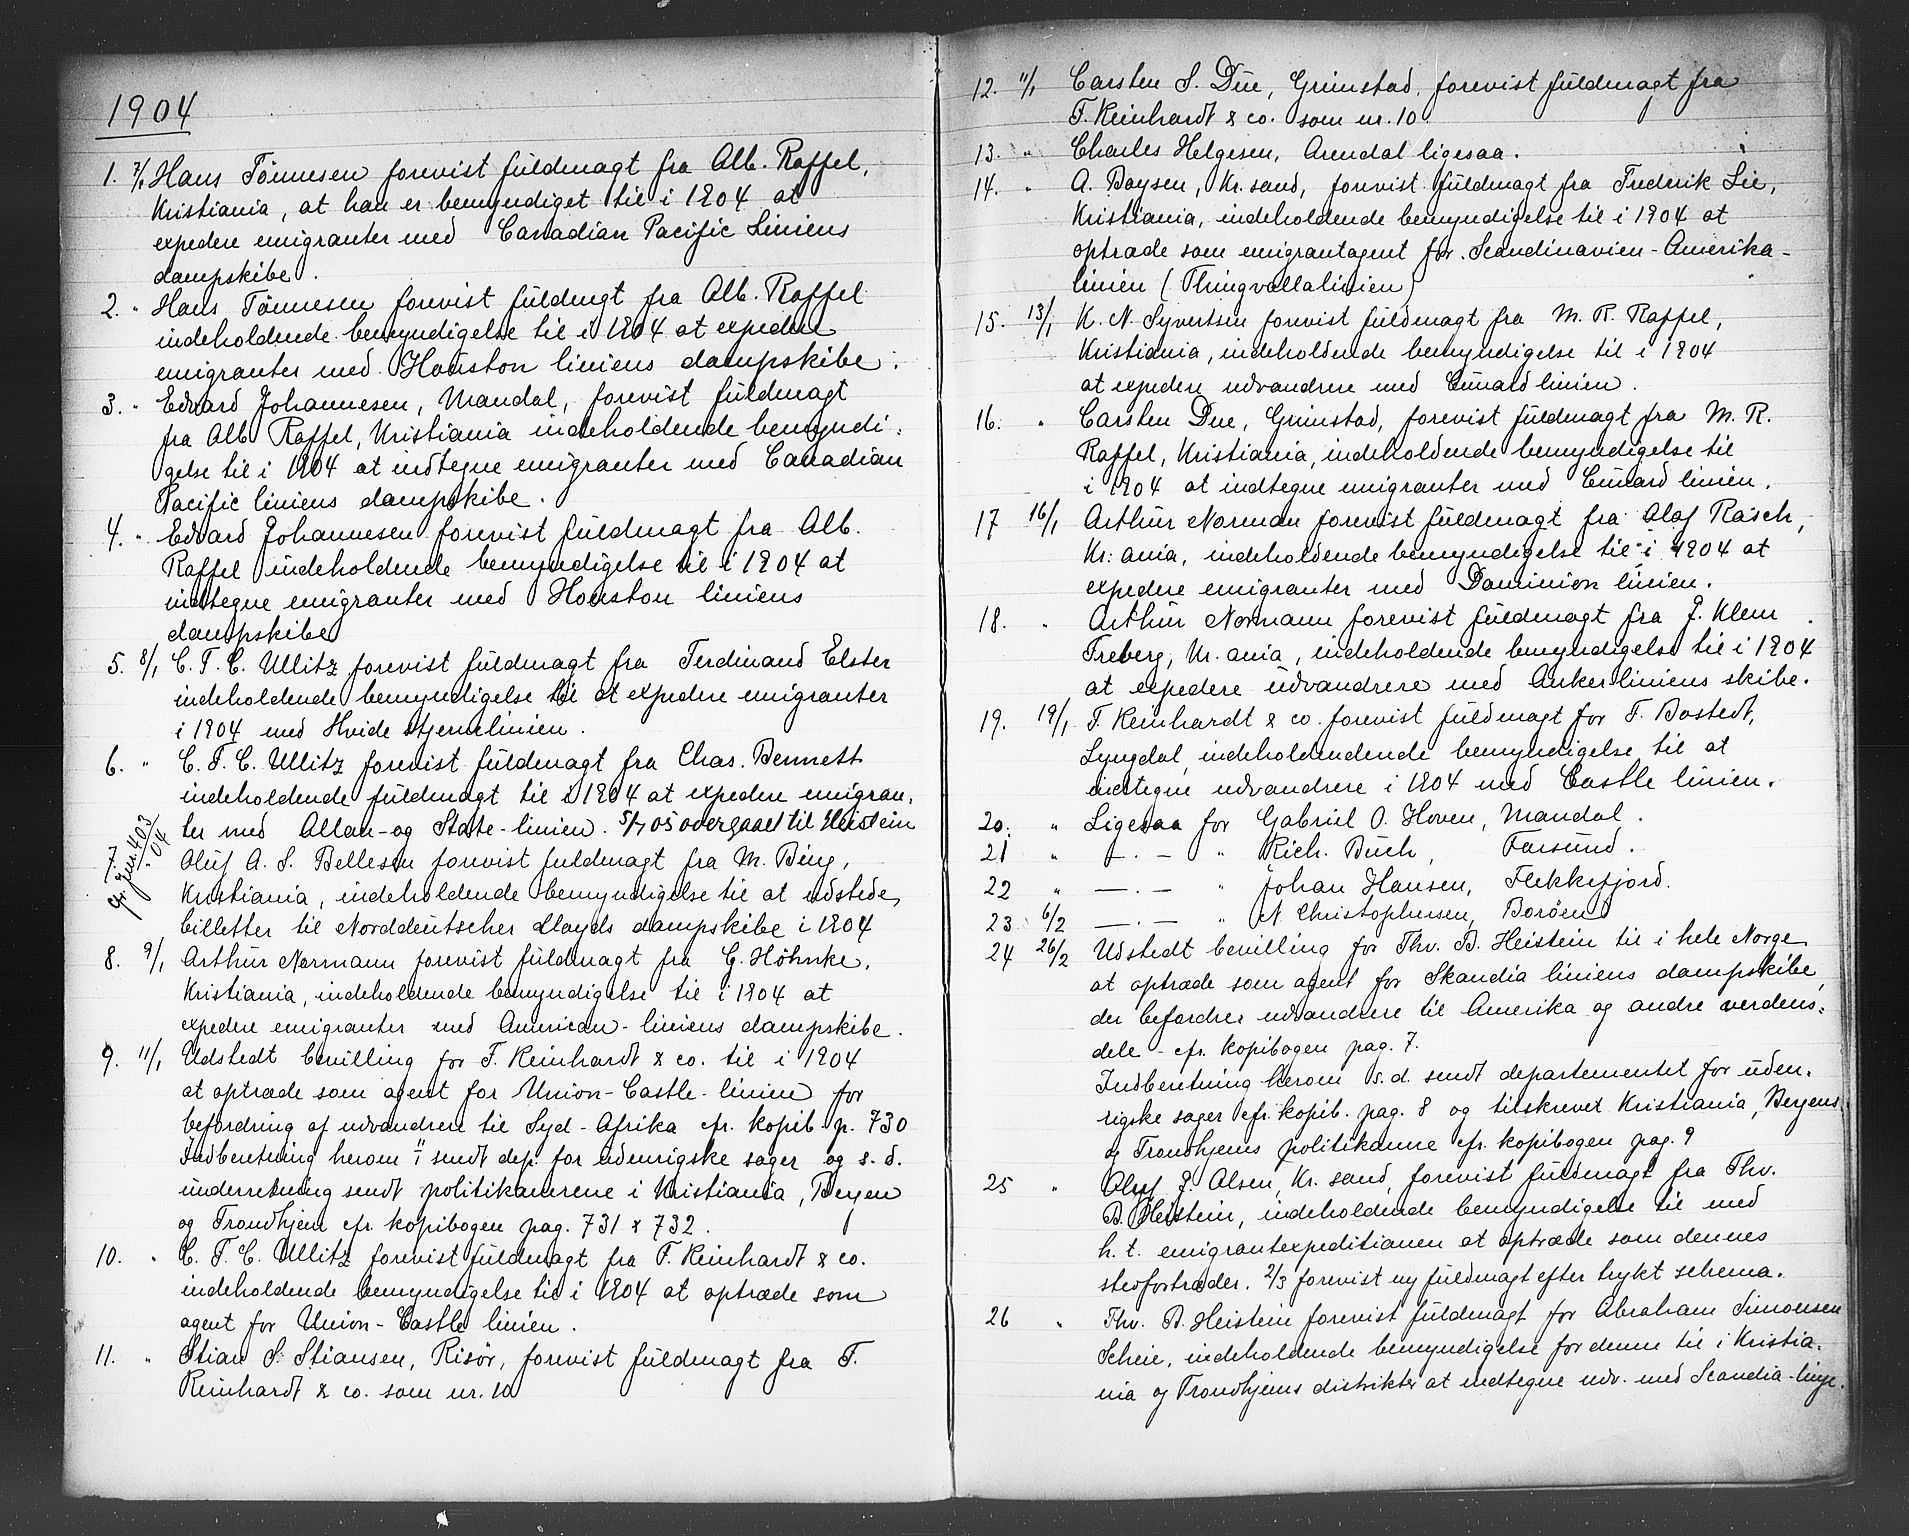 1904
1. 7/1 Hans Tönnesen forevist fuldmagt fra Alb. Raffel,
Kristiania, at han er bemyndiget til i 1904 at
expedere emigranter med Canadian Pacific Liniens
dampskibe.
2. " Hans Tönnesen forevist fuldmgt fra Alb. Raffel
indeholdende bemyndigelse til i 1904 at expedere
emigranter med Houston liniens dampskibe.
3. " Edvard Johannesen, Mandal, forevist fuldmagt
fra Alb. Raffel, Kristiania indeholdende bemyndi-
gelse til i 1904 at indtegne emigranter med Canadian
Pacific liniens dampskibe.
4. " Edvard Johannesen forevist fuldmagt fra Alb.
Raffel indeholdende bemyndigelse til i 1904 at
indtegne emigranter med Houston liniens
dampskibe
5. 8/1 C. F. C. Ullitz forevist fuldmagt fra Ferdinand Elster
indeholdende bemyndigelse til at expedere emigranter
i 1904 med Hvide stjernelinien.
6. " C. F. C. Ullitz forevist fuldmagt fra Chas. Bennett
indeholdende fuldmagt til i 1904 at expedere emigran-
ter med Allan- og State-linien. 5/7 05 overgaaet til Heistein
7. " Oluf A. S. Bellesen forevist fuldmagt fra M. Bing,
cfr. Jur. 403/04
Kristiania, indeholdende bemyndigelse til at udstede
billetter til Norddeutscher Lloyds dampskibe i 1904
8. 9/1 Arthur Normann forevist fuldmagt fra G. Höhnke,
Kristiania, indeholdende bemyndigelse til i 1904 at
expedere emigranter med American-liniens dampskibe.
9. 11/1 Udstedt bevilling for F. Reinhardt & co. til i 1904
at optræde som agent for Union-Castle-linien for
befordring af udvandrere til Syd-Afrika cfr. kopib p. 730
Indberetning herom 11/1 sendt dep. for udenrigske sager og s. d.
underretning sendt politikamrene i Kristiania, Bergen
og Trondhjem cfr. kopibogen pag. 731 & 732.
10. " C. F. C. Ullitz forevist fuldmagt fra F. Reinhardt & co.
indeholdende bemyndigelse til i 1904 at optræde som
agent for Union-Castle linien.
11. " Stian S. Stiansen, Risör, forevist fuldmagt fra F.
Reinhardt & co. som nr. 10
12. 11/1 Carsten S. Due, Grimstad, forevist fuldmagt fra
F. Reinhardt & co. som nr. 10
13. " Charles Helgesen, Arendal ligesaa.
14. " A. Boysen, Kr.sand, forevist fuldmagt fra Frederik Lie,
Kristiania, indeholdende bemyndigelse til i 1904 at
optræde som emigrantagent for Scandinavien-Amerika-
linien (Thingvallalinien)
15. 13/1 K. N. Syvertsen forevist fuldmagt fra M. R. Raffel,
Kristiania, indeholdende bemyndigelse til i 1904
at expedere udvandrere med Cunard linien.
16. " Carsten Due, Grimstad, forevist fuldmagt fra M. R.
Raffel, Kristiania, indeholdende bemyndigelse til
i 1904 at indtegne emigranter med Cunard linien.
17 16/1 Arthur Norman forevist fuldmagt fra Olaf Rasch,
Kr:ania, indeholdende bemyndigelse til i 1904 at
expedere emigranter med Dominion linien.
18. " Arthur Normann forevist fuldmagt fra J. Klem
Freberg, Kr.ania, indeholdende bemyndigelse til i 1904
at expedere udvandrere med Ankerliniens skibe.
19. 19/1 F. Reinhardt & co. forevist fuldmagt for F. Bostedt,
Lyngdal, indeholdendende bemyndigelse til at
indtegne udvandrere i 1904 med Castle linien.
20. " Ligesaa for Gabriel O. Hoven, Mandal.
21 " — . — " Rich. Buch, Farsund.
22 " — . — " Johan Hansen, Flekkefjord.
23 6/2 — . — " N. Christophersen, Boröen
24 26/2 Udstedt bevilling for Thv. B. Heistein til i hele Norge
at optræde som agent for Skandia liniens dampskibe,
der befordrer udvandrere til Amerika og andre verdens-
dele - cfr. kopibogen pag. 7.
Indberetning herom s. d. sendt departementet for uden-
rigske sager cfr. kopib. pag. 8 og tilskrevet Kristiania, Bergens
og Trondhjems politikamre cfr. kopibogen pag. 9
25 " Oluf J. Olsen, Kr. sand, forevist fuldmagt fra Thv.
B. Heistein, indeholdende bemyndigelse til med
h. t. emigrantexpeditionen at optræde som dennes
stedfortræder. 2/3 forevist ny fuldmagt efter trykt schema.
26 " Thv. B. Heistein forevist fuldmagt for Abraham Simonsen
Scheie, indeholdende bemyndigelse for denne til i Kristia-
nia og Trondhjems distrikter at indtegne udv. med Scandia-linje.